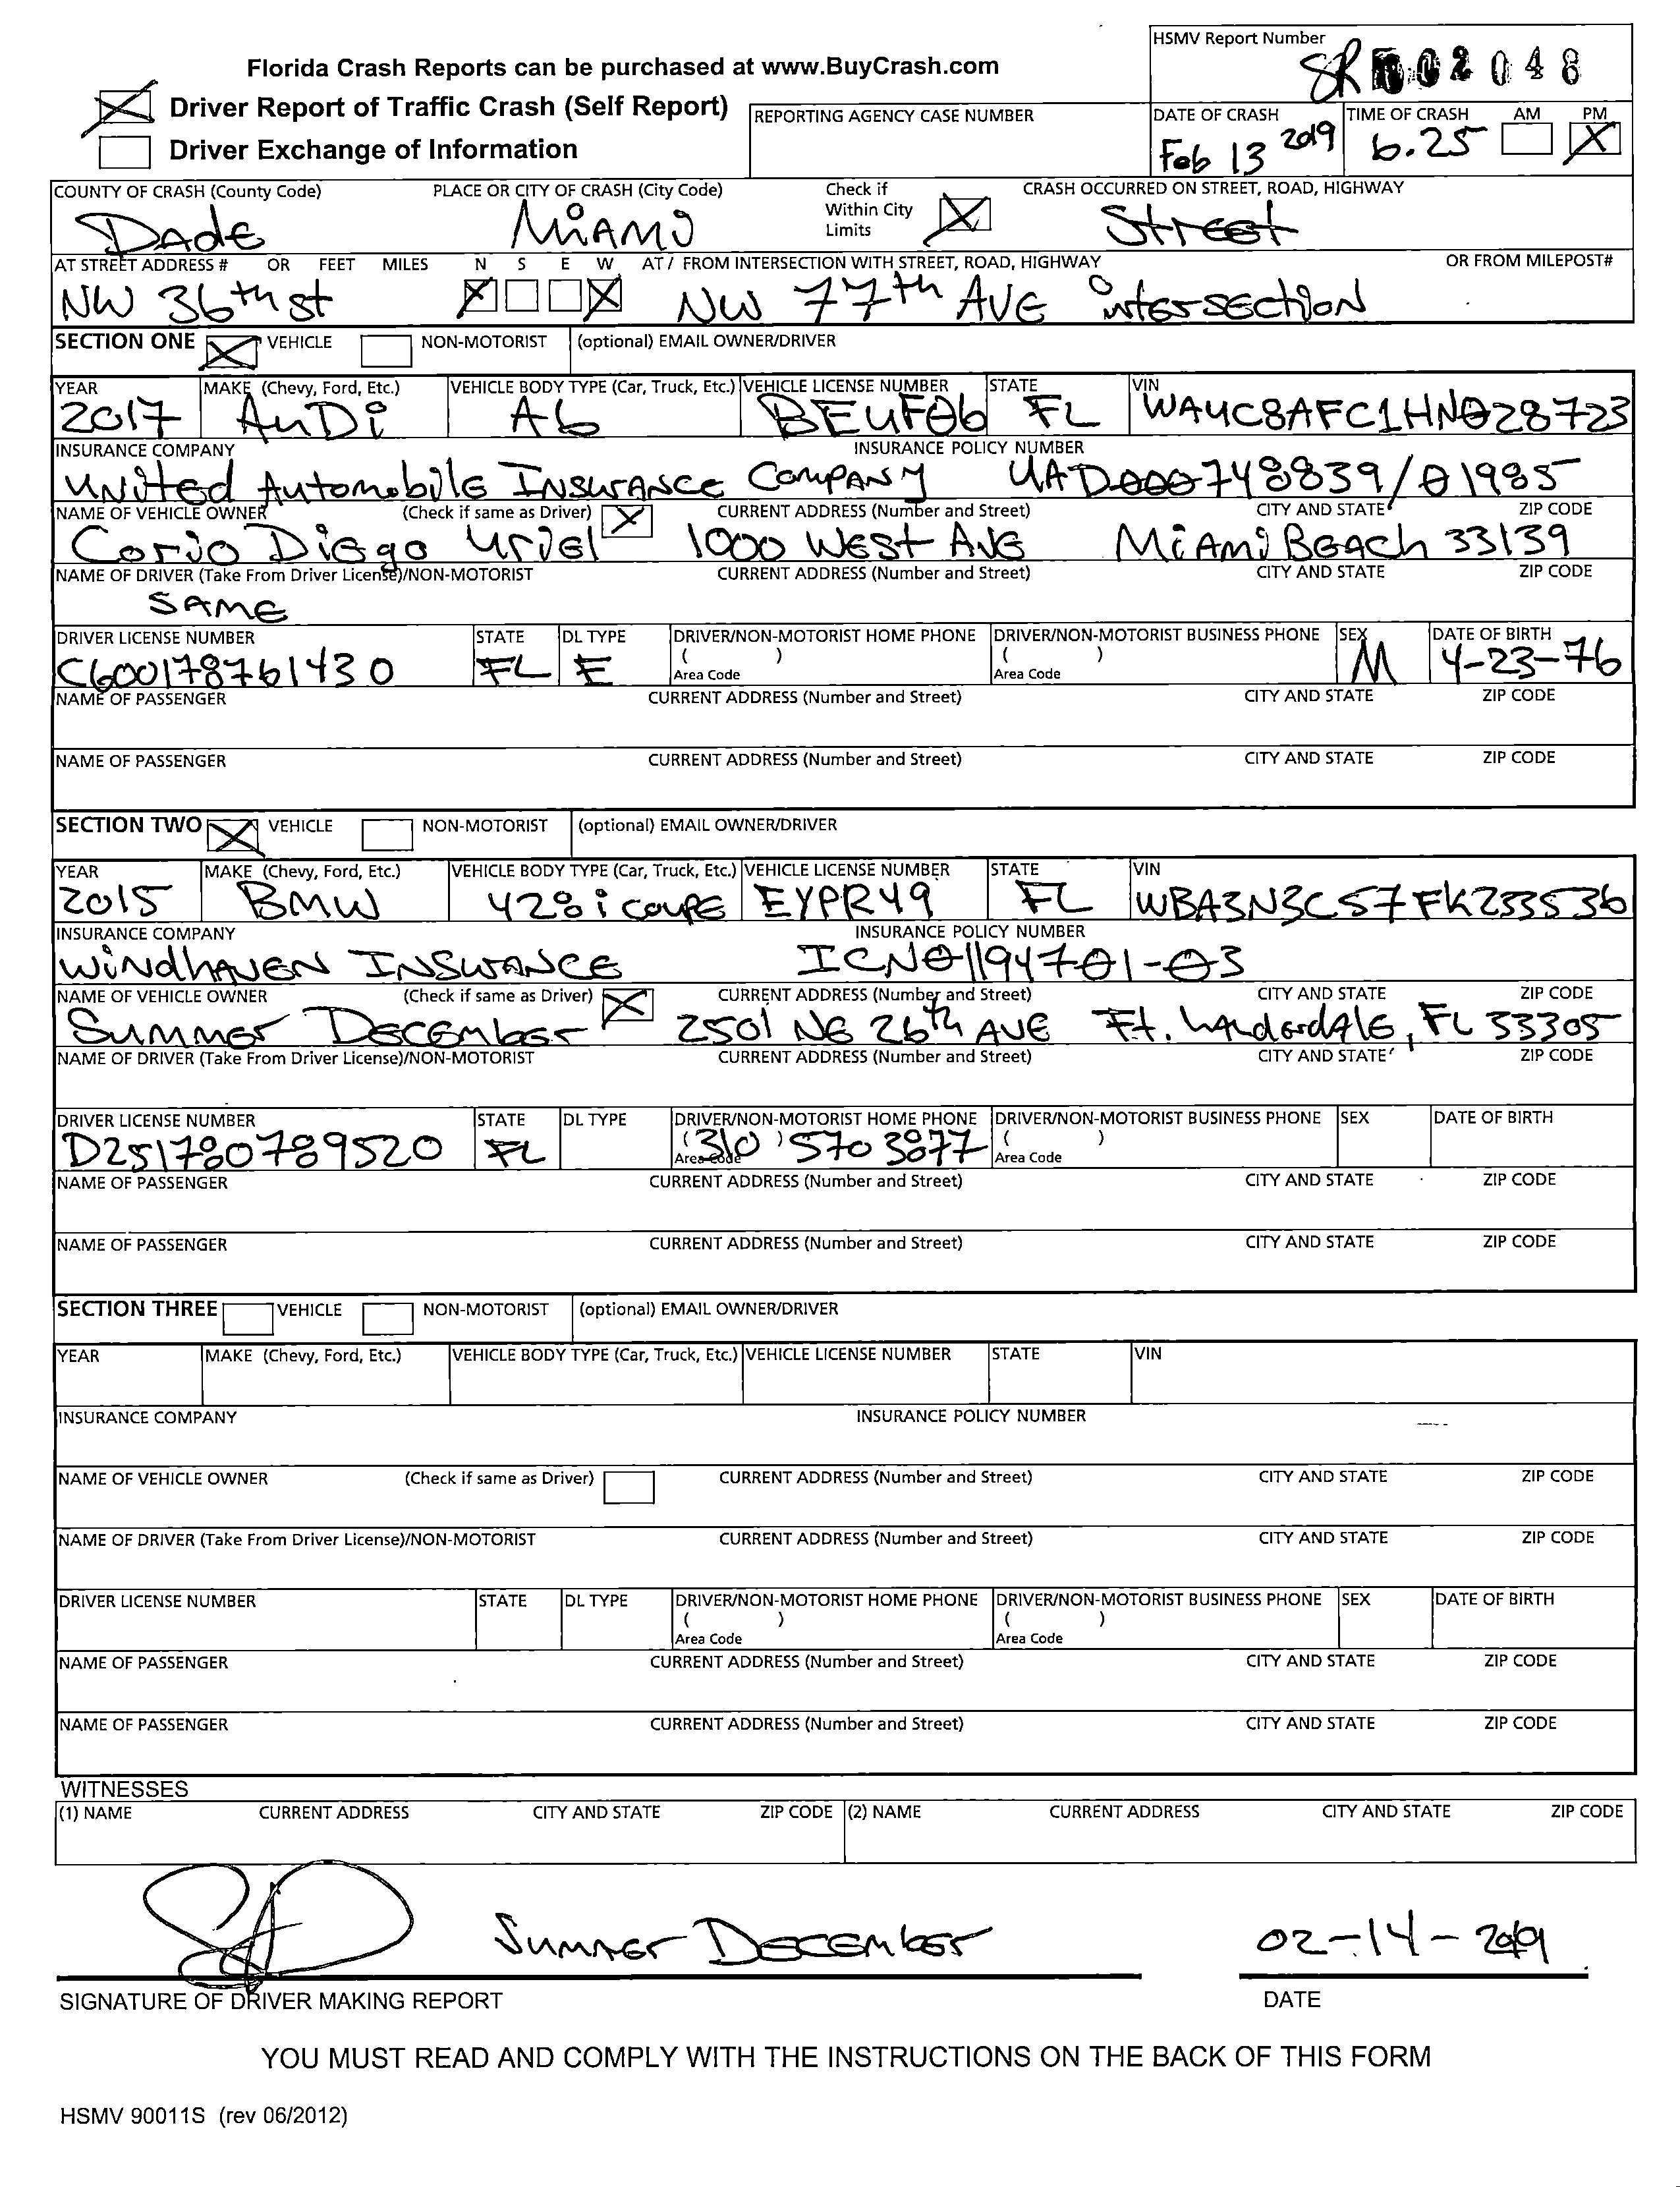 HSMV Report Number
Florida Crash Reports can be purchased at www.BuyCrash.com
SR 02 048
Driver Report of Traffic Crash (Self Report)
REPORTING AGENCY CASE NUMBER
DATE OF CRASH
TIME OF CRASH AM PM
Feb 13 2019 6.25
Driver Exchange of Information
COUNTY OF CRASH (County Code) PLACE OR CITY OF CRASH (City Code) Check if Within City Limits CRASH OCCURRED ON STREET, ROAD, HIGHWAY
Dade Miami Street
AT STREET ADDRESS # OR FEET MILES N S E W AT / FROM INTERSECTION WITH STREET, ROAD, HIGHWAY OR FROM MILEPOST#
NW 36th st NW 77th AVE intersection
SECTION ONE VEHICLE NON-MOTORIST (optional) EMAIL OWNER/DRIVER
YEAR MAKE (Chevy, Ford, Etc.) VEHICLE BODY TYPE (Car, Truck, Etc.) VEHICLE LICENSE NUMBER STATE VIN
2017 AuDi A6 BEUF06 FL WAUC8AFC1HN028723
INSURANCE COMPANY INSURANCE POLICY NUMBER
United Automobile Insurance Company UAD000748839/01985
NAME OF VEHICLE OWNER (Check if same as Driver) CURRENT ADDRESS (Number and Street) CITY AND STATE ZIP CODE
Corio Diego Uriel 1000 West Ave Miami Beach 33139
NAME OF DRIVER (Take From Driver License)/NON-MOTORIST CURRENT ADDRESS (Number and Street) CITY AND STATE ZIP CODE
SAME
DRIVER LICENSE NUMBER STATE DL TYPE DRIVER/NON-MOTORIST HOME PHONE DRIVER/NON-MOTORIST BUSINESS PHONE SEX DATE OF BIRTH
C600178761430 FL E ( ) ( ) M 4-23-76
Area Code Area Code
NAME OF PASSENGER CURRENT ADDRESS (Number and Street) CITY AND STATE ZIP CODE
NAME OF PASSENGER CURRENT ADDRESS (Number and Street) CITY AND STATE ZIP CODE
SECTION TWO VEHICLE NON-MOTORIST (optional) EMAIL OWNER/DRIVER
YEAR MAKE (Chevy, Ford, Etc.) VEHICLE BODY TYPE (Car, Truck, Etc.) VEHICLE LICENSE NUMBER STATE VIN
2015 BMW 428i coupe EYPR49 FL WBA3N3C57FK233536
INSURANCE COMPANY INSURANCE POLICY NUMBER
Windhaven Insurance ICN01194701-03
NAME OF VEHICLE OWNER (Check if same as Driver) CURRENT ADDRESS (Number and Street) CITY AND STATE ZIP CODE
Summer December 2501 NE 26th AVE Ft. Lauderdale, FL 33305
NAME OF DRIVER (Take From Driver License)/NON-MOTORIST CURRENT ADDRESS (Number and Street) CITY AND STATE ZIP CODE
DRIVER LICENSE NUMBER STATE DL TYPE DRIVER/NON-MOTORIST HOME PHONE DRIVER/NON-MOTORIST BUSINESS PHONE SEX DATE OF BIRTH
D251780789520 FL (310) 570 3877 ( )
Area Code Area Code
NAME OF PASSENGER CURRENT ADDRESS (Number and Street) CITY AND STATE ZIP CODE
NAME OF PASSENGER CURRENT ADDRESS (Number and Street) CITY AND STATE ZIP CODE
SECTION THREE VEHICLE NON-MOTORIST (optional) EMAIL OWNER/DRIVER
YEAR MAKE (Chevy, Ford, Etc.) VEHICLE BODY TYPE (Car, Truck, Etc.) VEHICLE LICENSE NUMBER STATE VIN
INSURANCE COMPANY INSURANCE POLICY NUMBER
NAME OF VEHICLE OWNER (Check if same as Driver) CURRENT ADDRESS (Number and Street) CITY AND STATE ZIP CODE
NAME OF DRIVER (Take From Driver License)/NON-MOTORIST CURRENT ADDRESS (Number and Street) CITY AND STATE ZIP CODE
DRIVER LICENSE NUMBER STATE DL TYPE DRIVER/NON-MOTORIST HOME PHONE DRIVER/NON-MOTORIST BUSINESS PHONE SEX DATE OF BIRTH
( ) ( )
Area Code Area Code
NAME OF PASSENGER CURRENT ADDRESS (Number and Street) CITY AND STATE ZIP CODE
NAME OF PASSENGER CURRENT ADDRESS (Number and Street) CITY AND STATE ZIP CODE
WITNESSES
(1) NAME CURRENT ADDRESS CITY AND STATE ZIP CODE (2) NAME CURRENT ADDRESS CITY AND STATE ZIP CODE
Summer December 02-14-2019
SIGNATURE OF DRIVER MAKING REPORT DATE
YOU MUST READ AND COMPLY WITH THE INSTRUCTIONS ON THE BACK OF THIS FORM
HSMV 90011S (rev 06/2012)